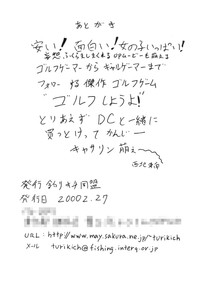 あとがき
安い!面白い!女の子いっぱい!
妄想ふくらましまくれるOPムービーも萌え
ゴルフゲーマーからギャルゲーマーまで
フォローする傑作ゴルフゲーム
"ゴルフしようよ"
とりあえずDCと一緒に
買っとけってかんじー
キャサリン萌え〜
発行 釣りキチ同盟
発行日 2002.2.7
URL: http://www.may.sakura.ne.jp/~turikich
メール turikich@fishing.interq.or.jp